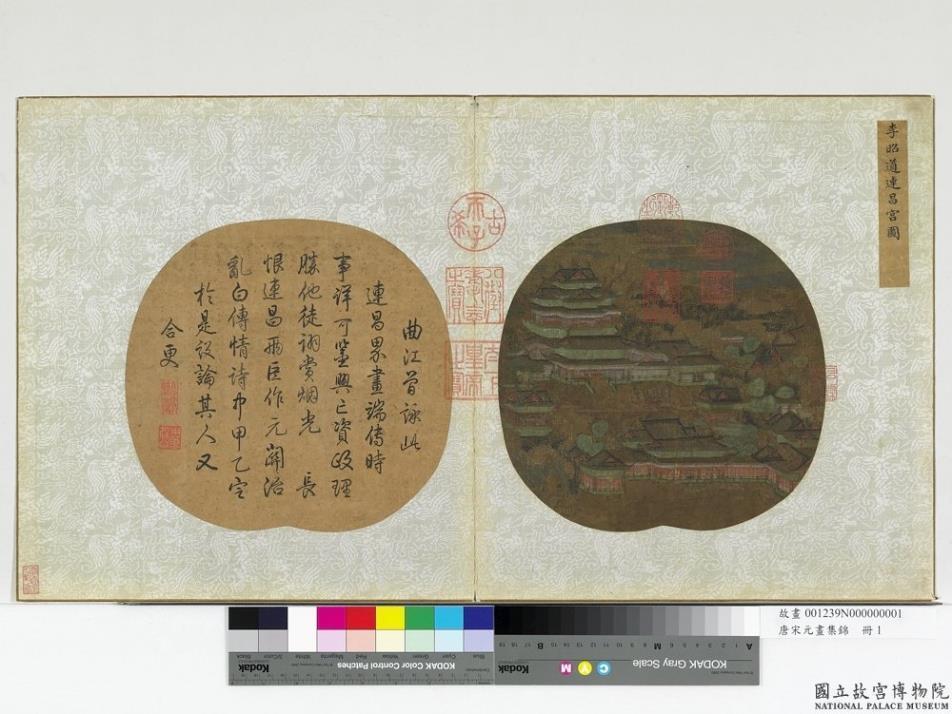 李昭道連昌宮圖
古希天子
曲江曾詠此
連昌界畫端傳時
事詳可鑒興亡資政理
勝他徒詡賞烟光 長
恨連昌兩臣作元關治
亂白傳情詩中甲乙定
於是設論其人又
合更
KODAK Color Control Patches
Kodak
KODAK Gray Scale
Kodak
C Y M
A M B
Blue Cyan Green Yellow Red Magenta White 3/Color Black
故畫 001239N000000001
唐宋元畫集錦 冊 1
國立故宮博物院
NATIONAL PALACE MUSEUM